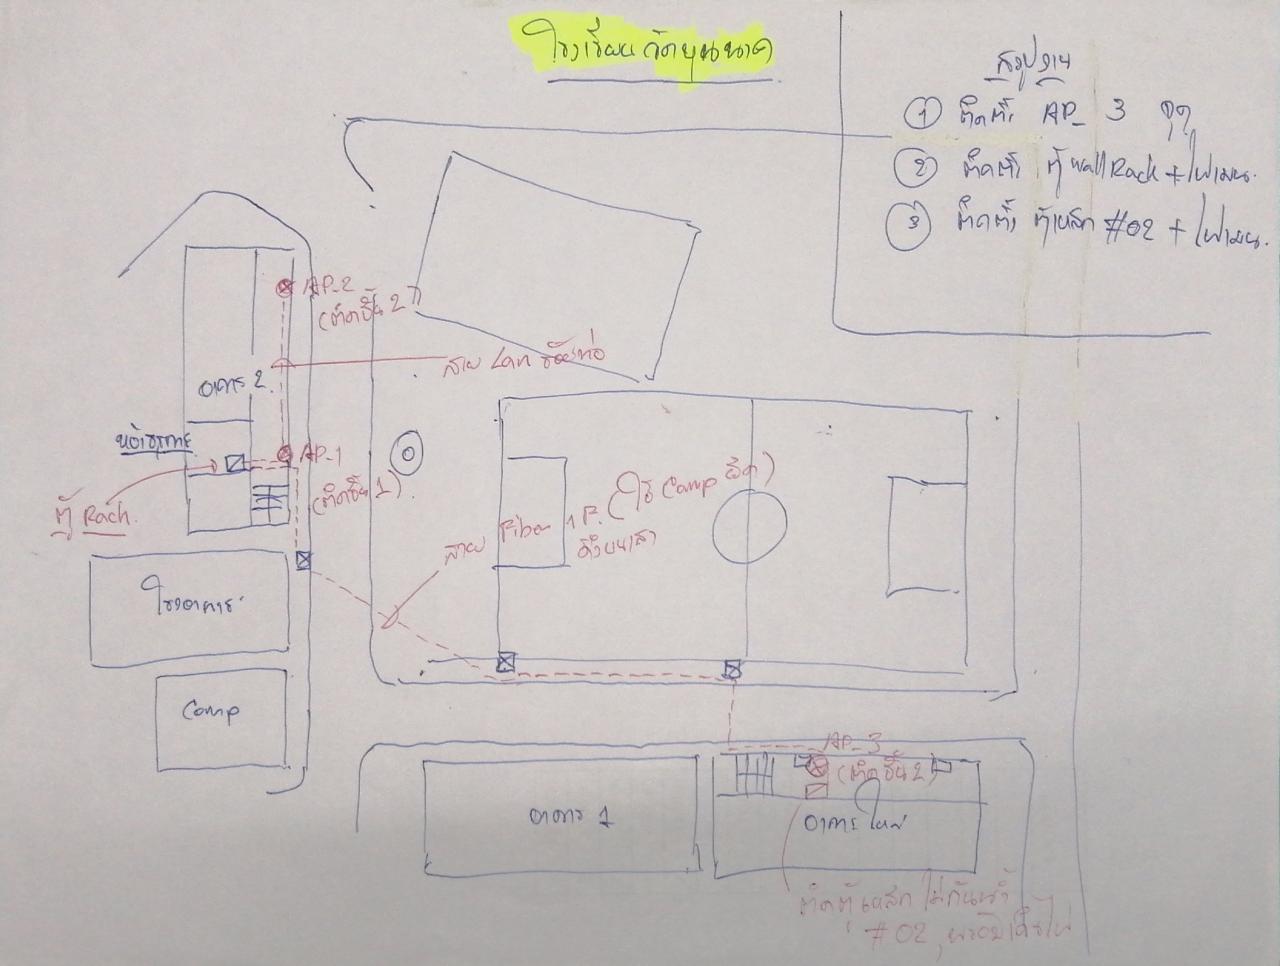 โรงเรียน วัดบุนนาค
สรุปงาน
① ติดตั้ง AP_ 3 จุด
② ติดตั้ง ตู้ wall Rack + ไฟเมน.
③ ติดตั้ง ตู้เหล็ก #02 + ไฟเมน.
AP-2
(ติดชั้น 2)
สาย Lan ร้อยท่อ
อาคาร 2
AP-1
(ติดชั้น 1)
ตู้ Rack.
สาย Fiber 1F. (ใช้ Comp ยึด)
โรงอาหาร
Comp
AP-3
(ติดชั้น 2)
อาคาร 1
อาคารใหม่
ติดตู้เหล็ก ไม่กันน้ำ
#02, พร้อมเดินไฟ